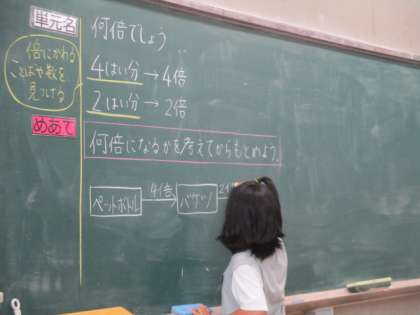 単元名
何倍でしょう
倍にかわる
ことばや数を
見つける
4はい分→4倍
2はい分→2倍
めあて
何倍になるかを考えてからもとめよう。
ペットボトル
4倍
バケツ